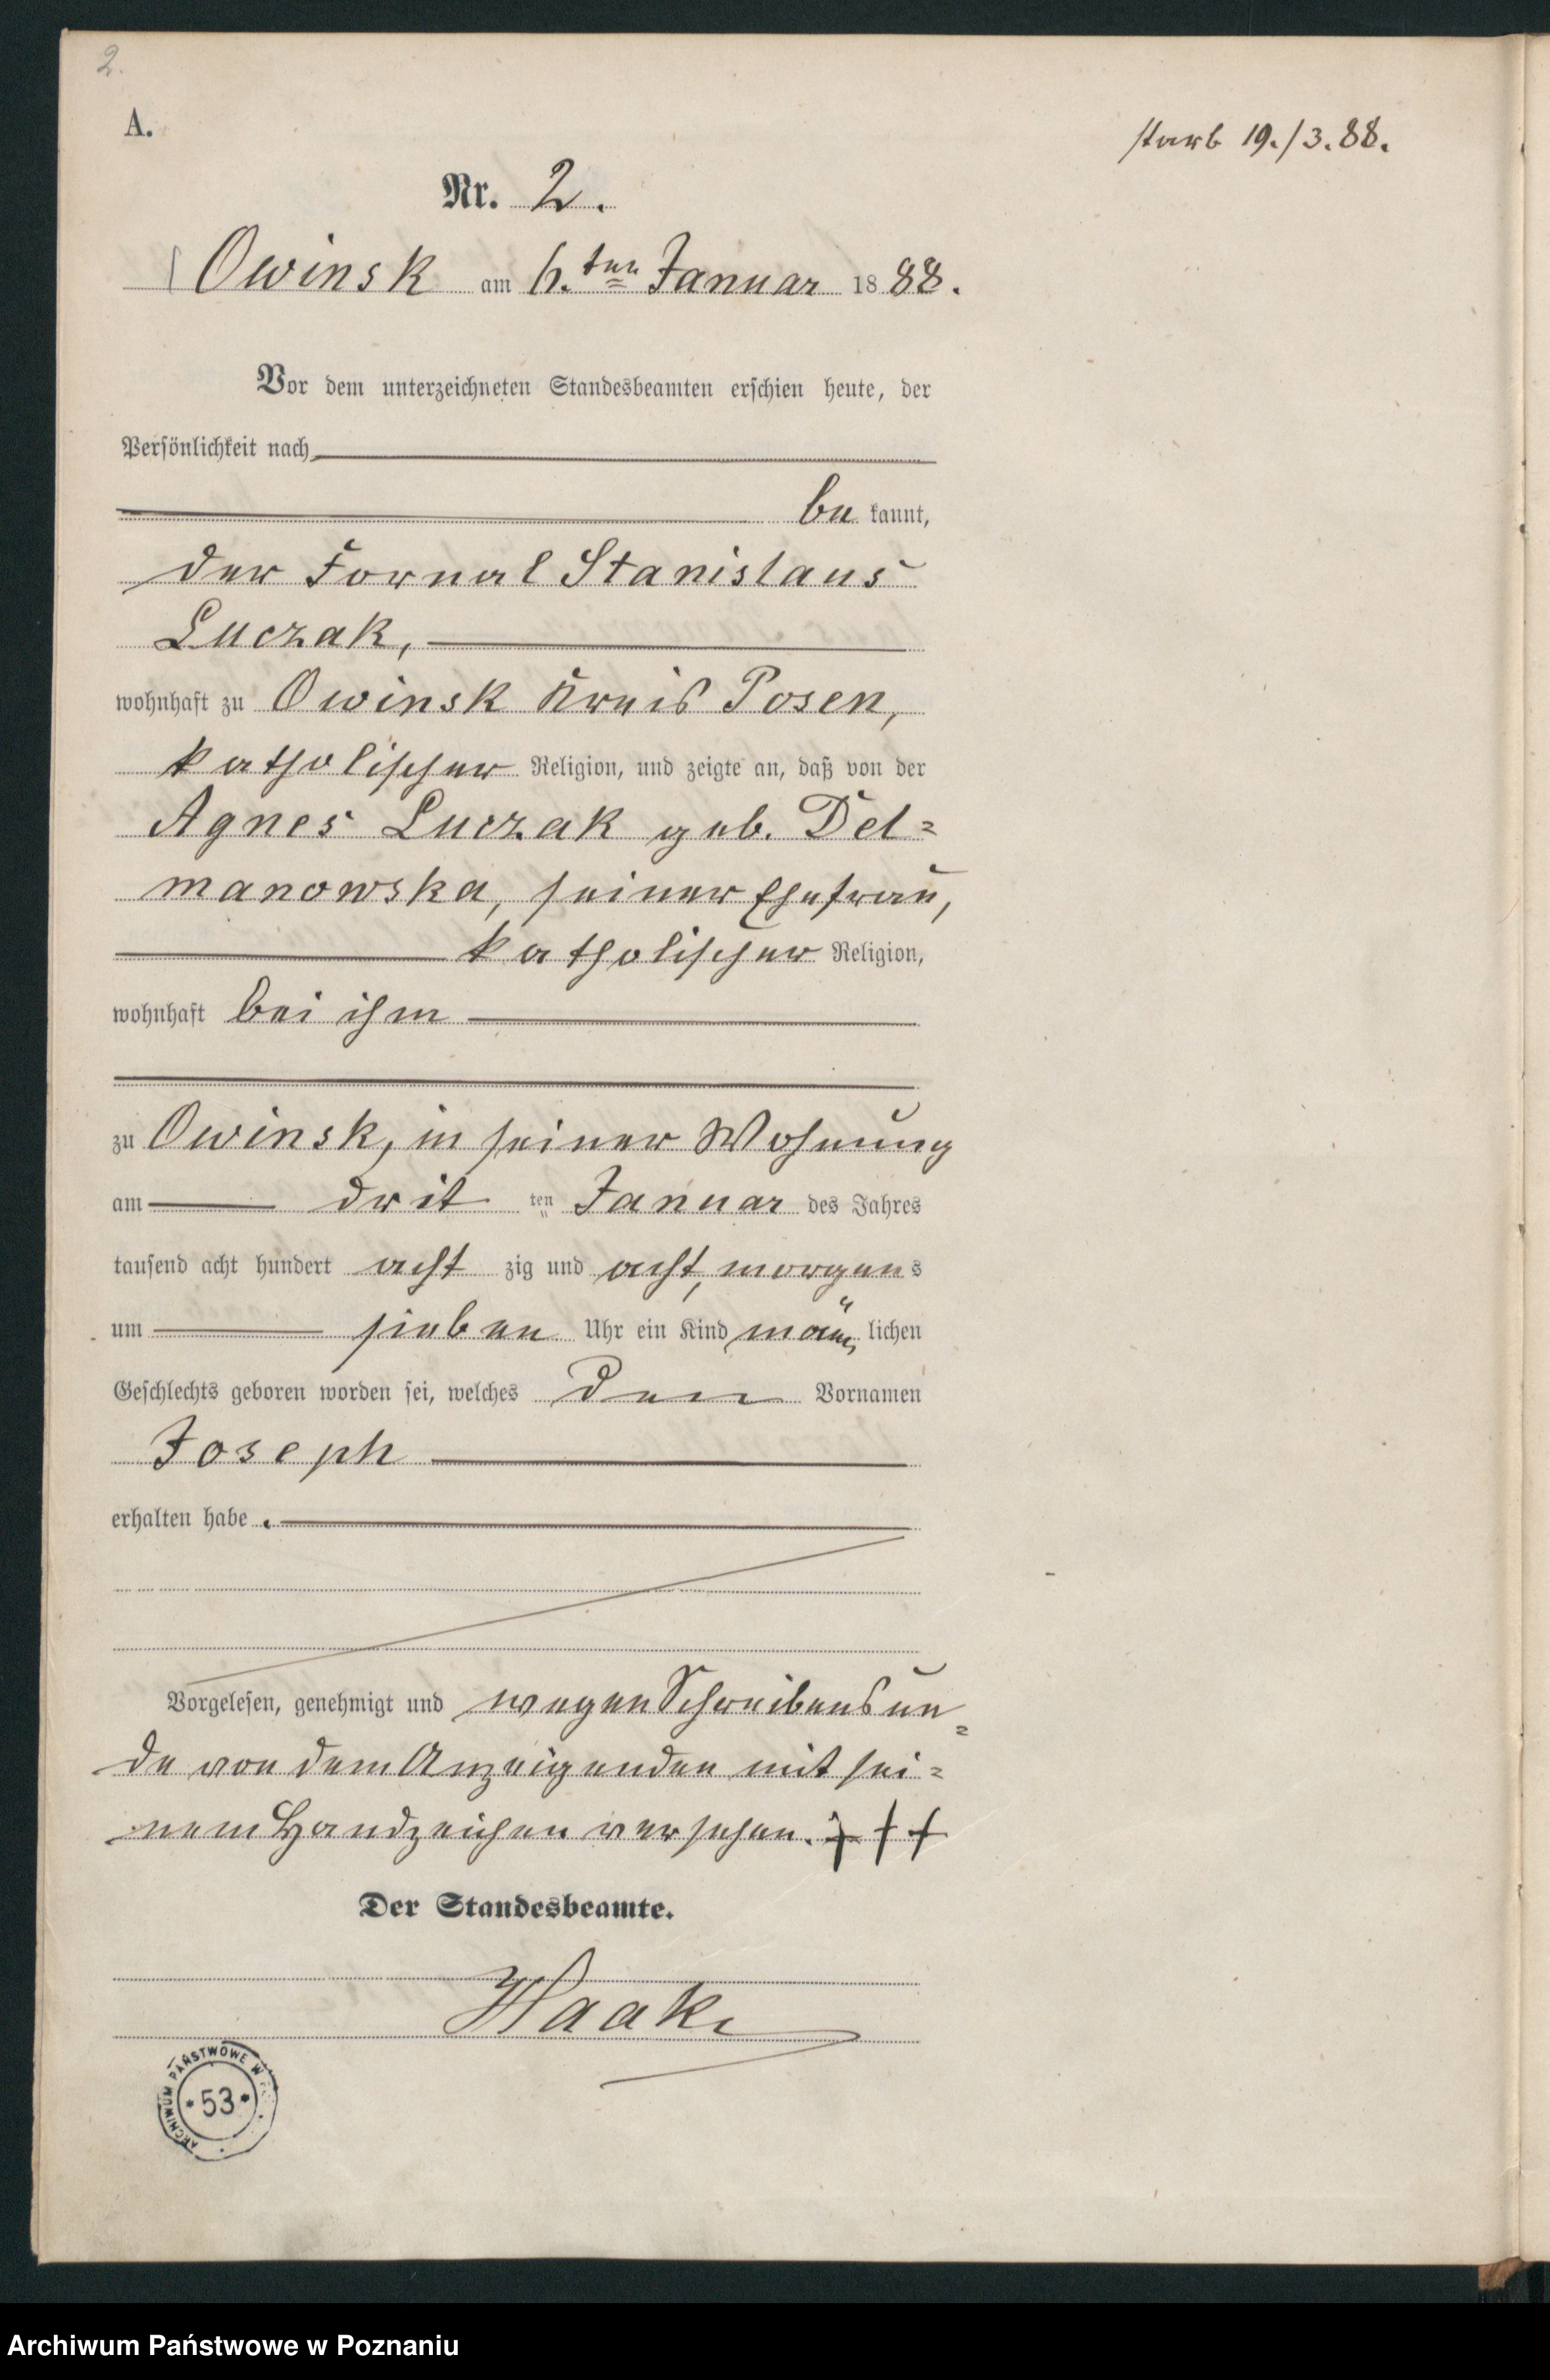 2.
A.
starb 19./3.88.
Nr. 2.
Owinsk am 6.ten Januar 1888.
Vor dem unterzeichneten Standesbeamten erschien heute, der
Persönlichkeit nach
be kannt,
der Fornal Stanislaus
Luczak,
wohnhaft zu Owinsk Kreis Posen,
katholischer Religion, und zeigte an, daß von der
Agnes Luczak geb. Det=
manowska, seiner Ehefrau,
katholischer Religion,
wohnhaft bei ihm
zu Owinsk, in seiner Wohnung
am drit ten Januar des Jahres
tausend acht hundert acht zig und acht, morgens
um sieben Uhr ein Kind männ lichen
Geschlechts geboren worden sei, welches den Vornamen
Joseph
erhalten habe.
Vorgelesen, genehmigt und wegen Schreibensun=
de von dem Anzeigenden mit sei=
nem Handzeichen versehen. + + +
Der Standesbeamte.
Haake
ARCHIWUM PAŃSTWOWE W
* 53 *
Archiwum Państwowe w Poznaniu